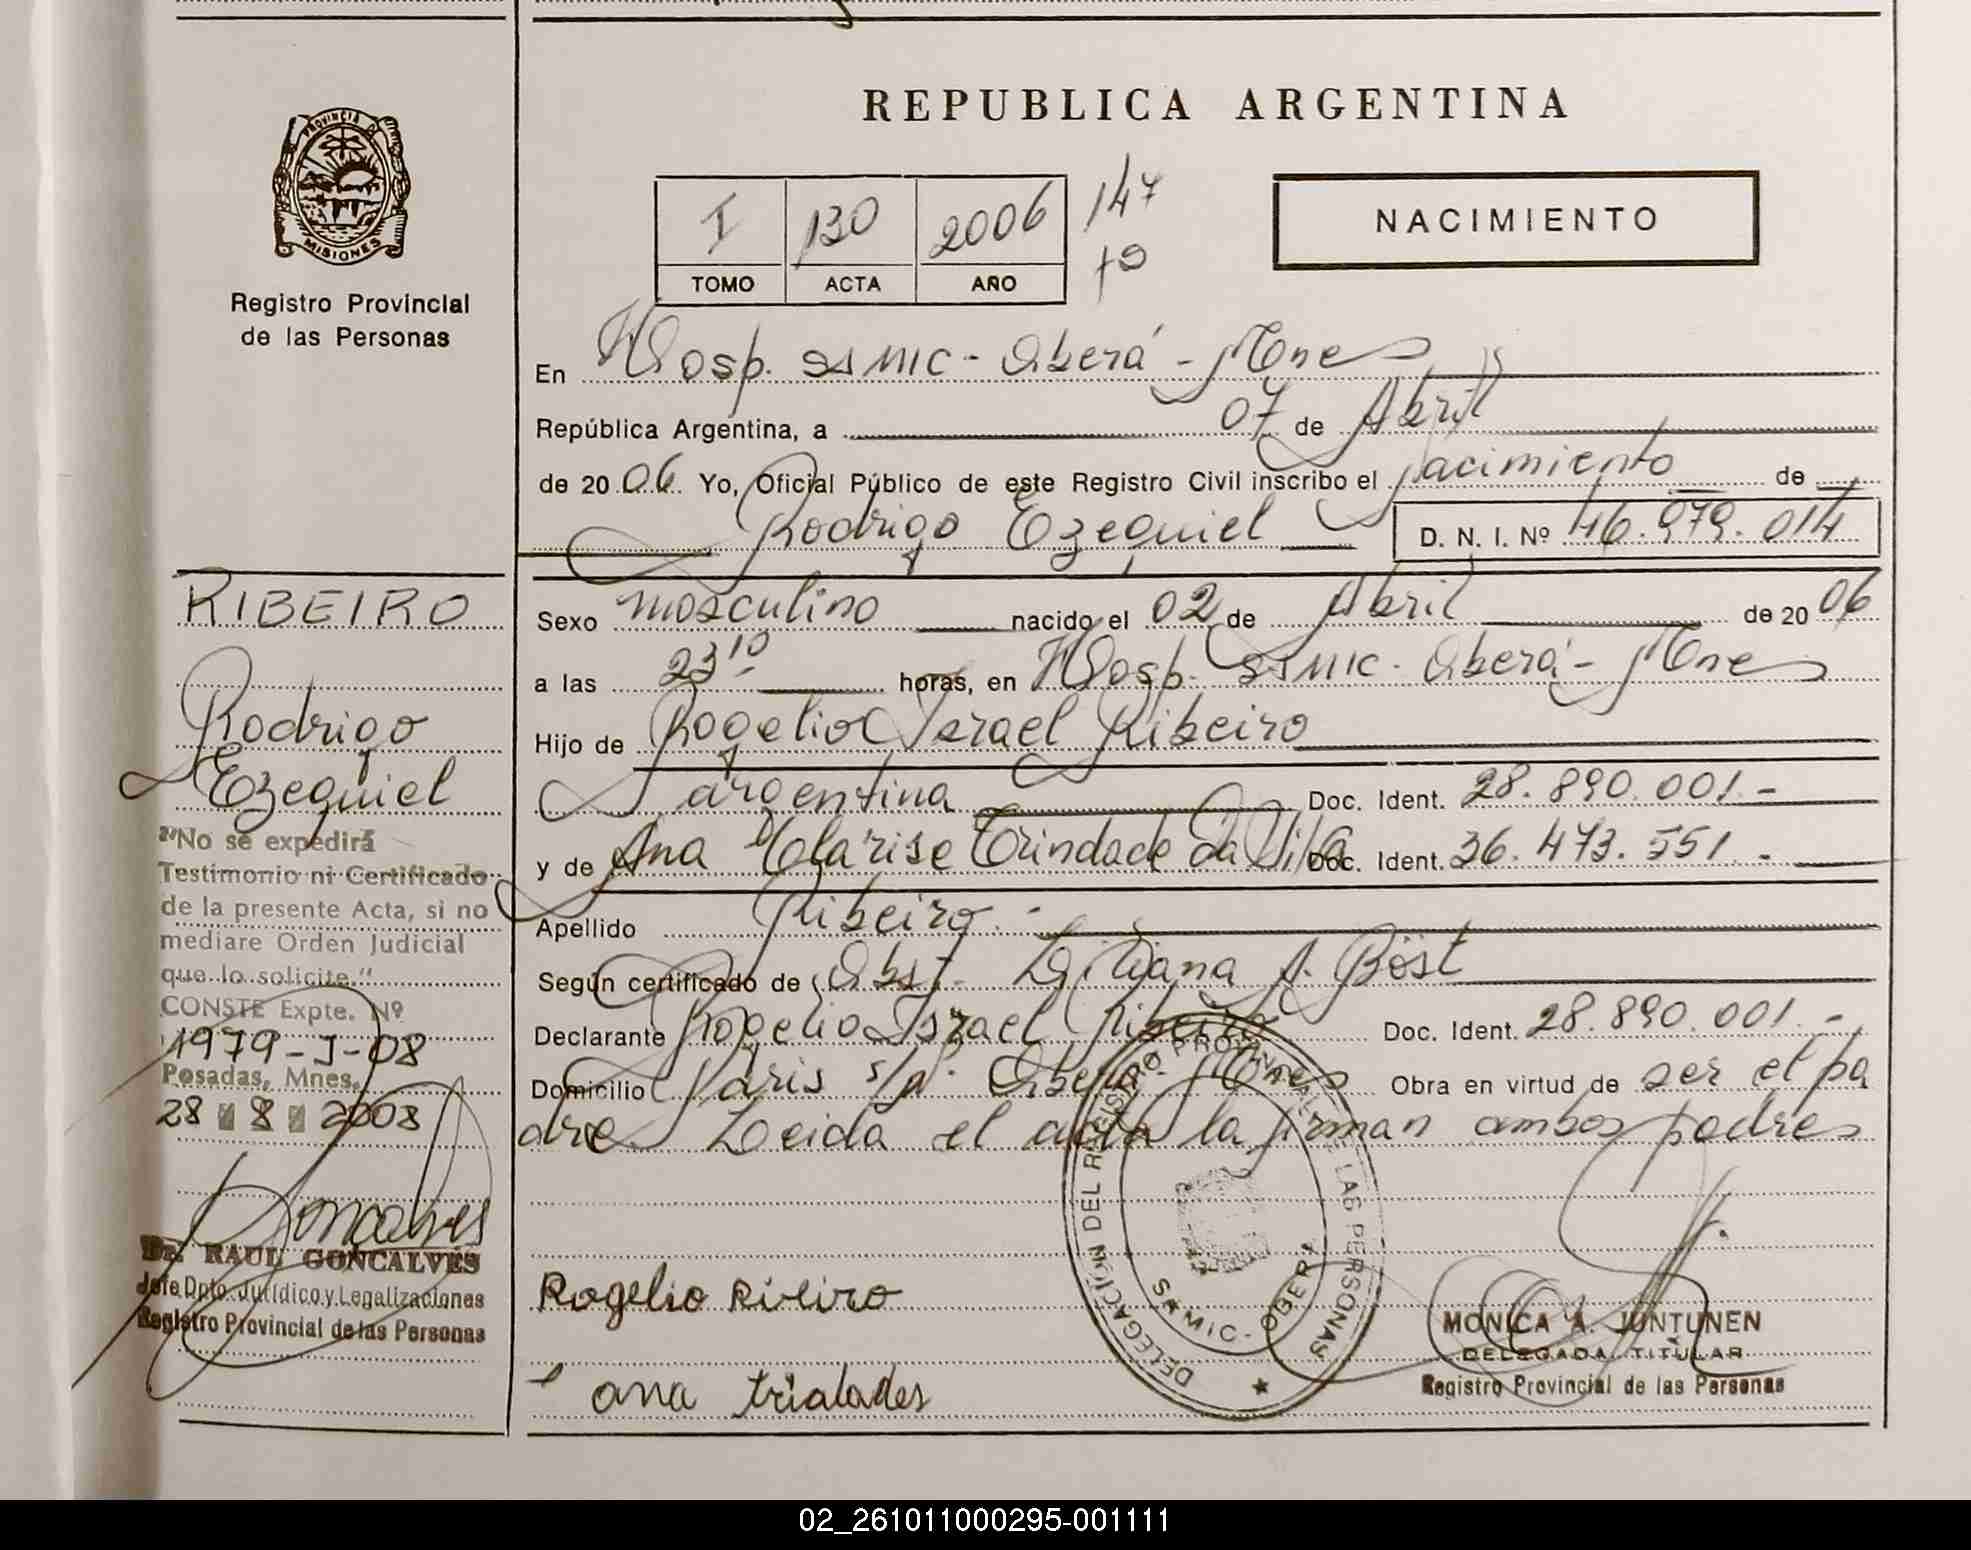 REPUBLICA ARGENTINA
PROVINCIA D
MISIONES
Registro Provincial
de las Personas
I 130 2006 147
TOMO ACTA AÑO
NACIMIENTO
En Hosp. SAMIC - Oberá - Mnes
República Argentina, a 07 de Abril
de 2006 Yo, Oficial Público de este Registro Civil inscribo el nacimiento de
Rodrigo Ezequiel D. N. I. Nº 46.979.014
RIBEIRO
Rodrigo
Ezequiel
Sexo masculino nacido el 02 de Abril de 2006
a las 23 10 horas, en Hosp. SAMIC - Oberá - Mnes
Hijo de Rogelio Israel Ribeiro
argentina Doc. Ident. 28.890.001.-
y de Ana Clarise Trindade da Silva Doc. Ident. 36.473.551.-
Apellido Ribeiro.-
Según certificado de Obst. Liliana A. Böst
Declarante Rogelio Israel Ribeiro Doc. Ident. 28.890.001.-
Domicilio Paris s/nº Oberá - Mnes Obra en virtud de ser el pa
dre. Leida el acta la firman ambos padres
"No se expedirá
Testimonio ni Certificado
de la presente Acta, si no
mediare Orden Judicial
que lo solicite."
CONSTE Expte. Nº
1979-J-08
Posadas, Mnes.
28 8 2008
Goncalves
Dr. RAUL GONCALVES
Jefe Dpto. Jurídico y Legalizaciones
Registro Provincial de las Personas
Rogelio Riveiro
ana trialades
DELEGACIÓN DEL REGISTRO PROVINCIAL DE LAS PERSONAS
SAMIC - OBERA
MONICA A. JUNTUNEN
DELEGADA TITULAR
Registro Provincial de las Personas
02_261011000295-001111